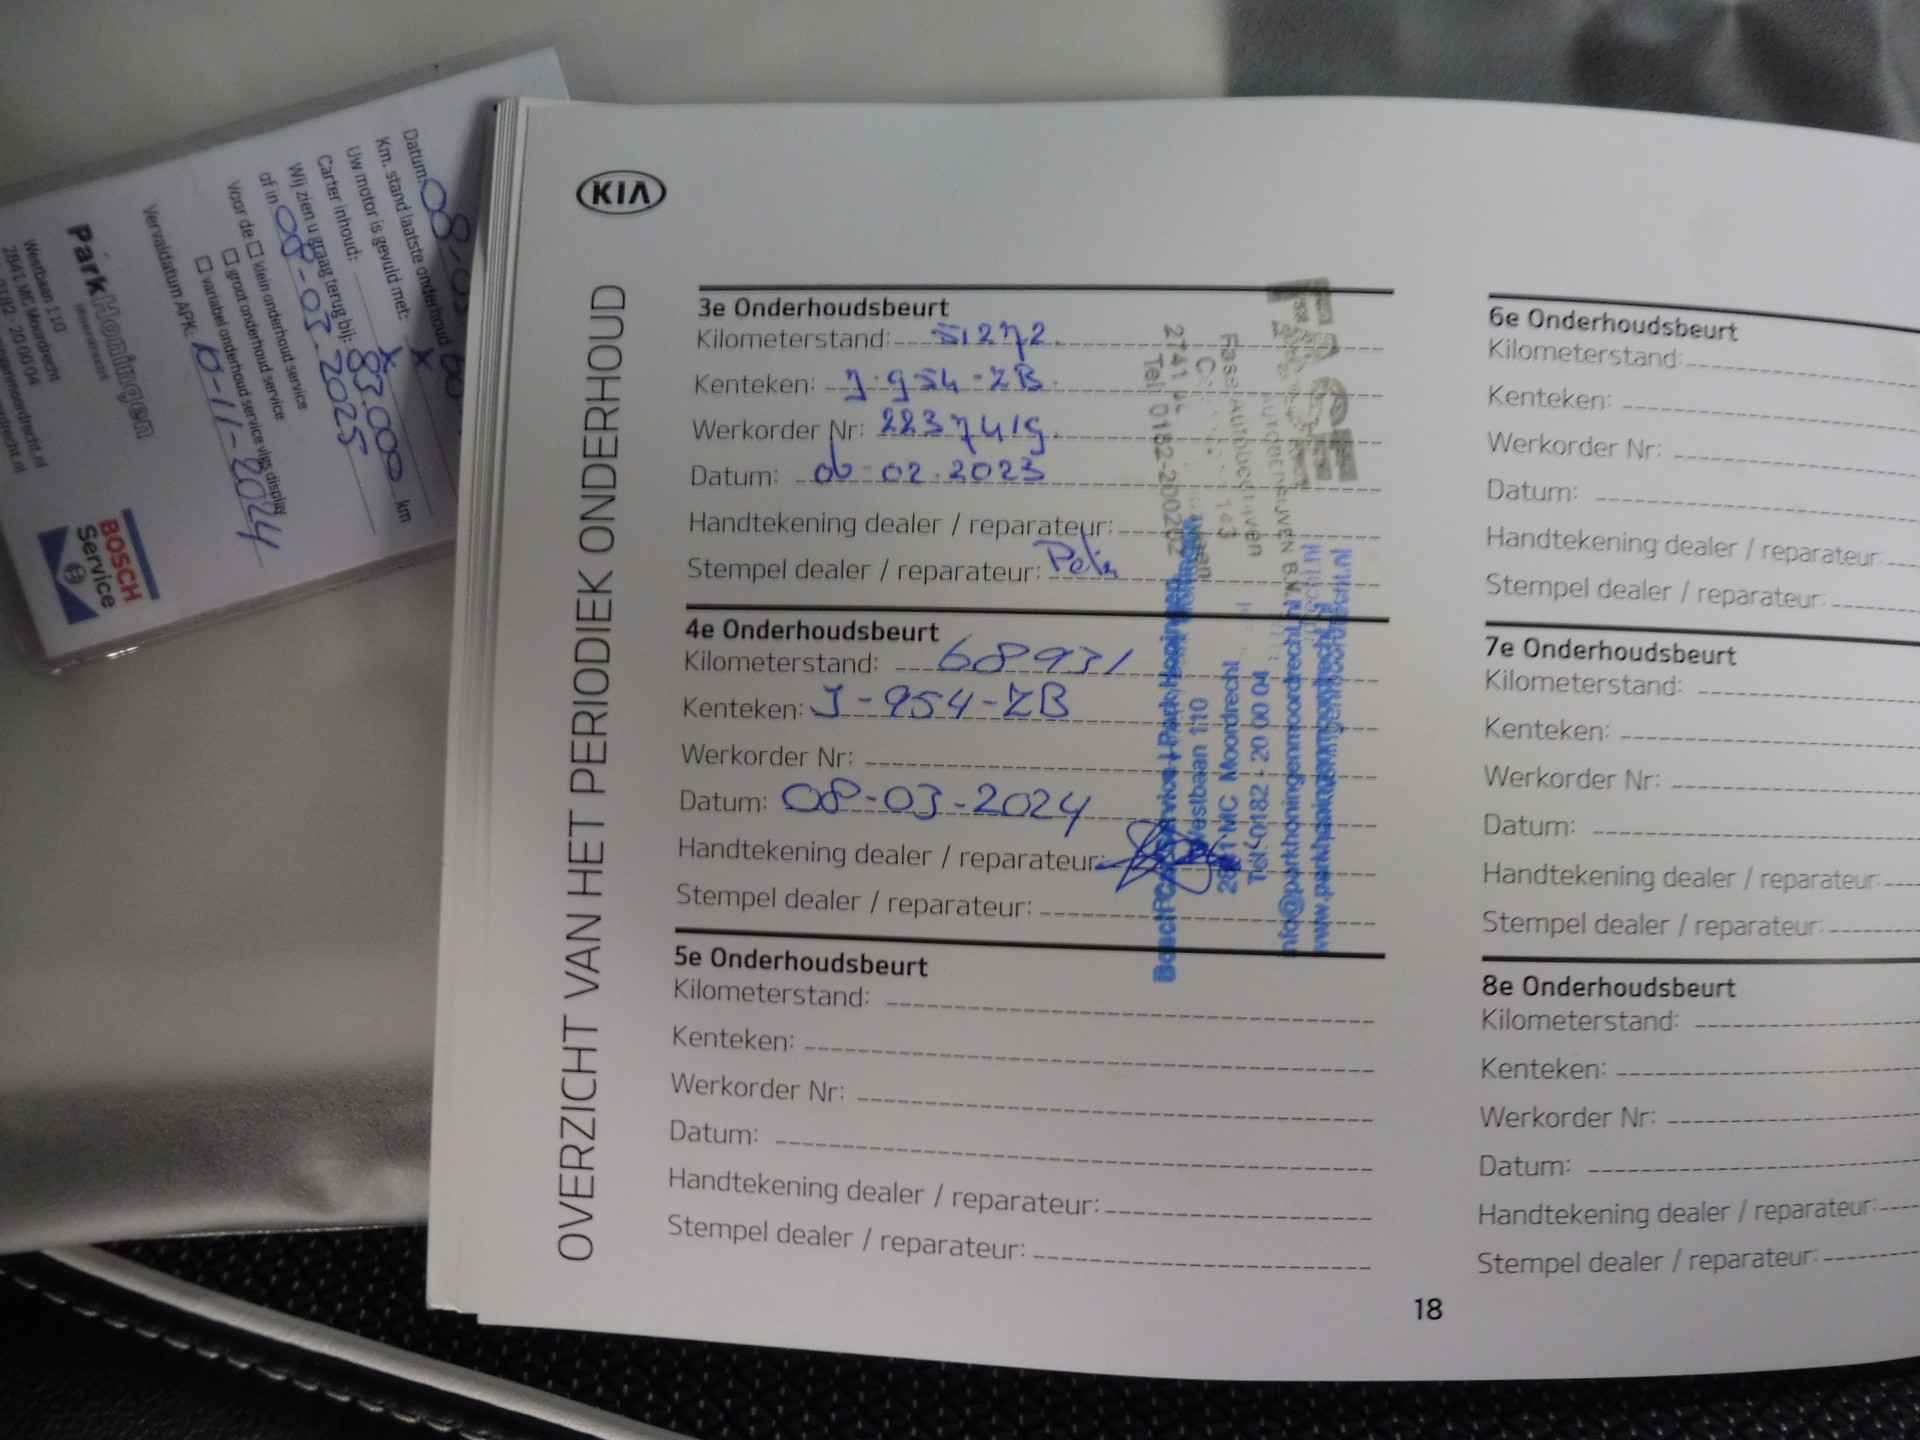 Datum: 08-03
Km. stand laatste onderhoud
Uw motor is gevuld met: x
Carter inhoud: x
Wij zien u graag terug bij: 83.000 km
of in 08-03-2025
Voor de □ klein onderhoud service
□ groot onderhoud service
□ variabel onderhoud service vlgs display
Vervaldatum APK: 10-11-2024
ParkHoningen
Westbaan 110
2841 MC Moordrecht
0182 - 20 00 04
BOSCH
Service
KIA
OVERZICHT VAN HET PERIODIEK ONDERHOUD
3e Onderhoudsbeurt
Kilometerstand: 51272
Kenteken: J-954-ZB
Werkorder Nr: 2237419
Datum: 06-02-2023
Handtekening dealer / reparateur:
Stempel dealer / reparateur:
Tel. 0182-200202
4e Onderhoudsbeurt
Kilometerstand: 68931
Kenteken: J-954-ZB
Werkorder Nr:
Datum: 08-03-2024
Handtekening dealer / reparateur:
Stempel dealer / reparateur:
Westbaan 110
2841 MC Moordrecht
Tel. 0182 - 20 00 04
info@parkhoningenmoordrecht.nl
5e Onderhoudsbeurt
Kilometerstand:
Kenteken:
Werkorder Nr:
Datum:
Handtekening dealer / reparateur:
Stempel dealer / reparateur:
6e Onderhoudsbeurt
Kilometerstand:
Kenteken:
Werkorder Nr:
Datum:
Handtekening dealer / reparateur:
Stempel dealer / reparateur:
7e Onderhoudsbeurt
Kilometerstand:
Kenteken:
Werkorder Nr:
Datum:
Handtekening dealer / reparateur:
Stempel dealer / reparateur:
8e Onderhoudsbeurt
Kilometerstand:
Kenteken:
Werkorder Nr:
Datum:
Handtekening dealer / reparateur:
Stempel dealer / reparateur:
18